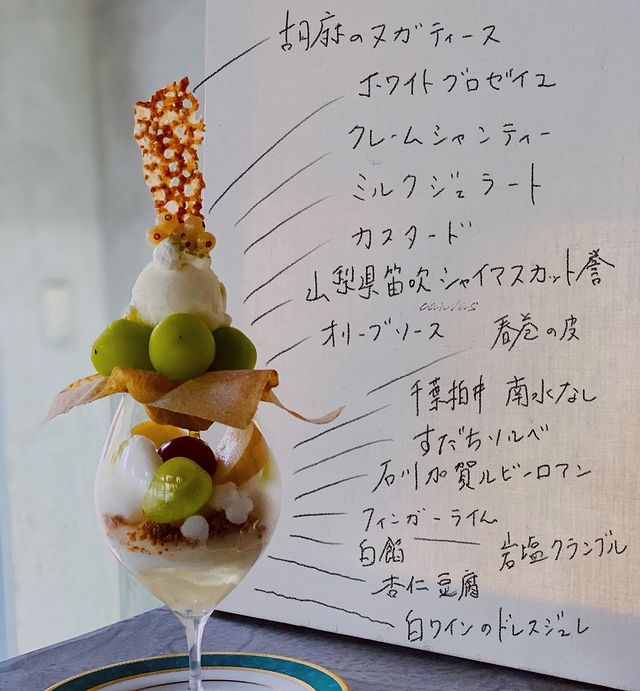 胡麻のヌガティース
ホワイトグロゼイユ
クレームシャンティー
ミルクジェラート
カスタード
山梨県笛吹 シャイマスカット誉
canvas
オリーブソース 春巻の皮
千葉柏井 南水なし
すだちソルベ
石川加賀ルビーロマン
フィンガーライム
白餡 岩塩クランブル
杏仁豆腐
白ワインのドレスジュレ